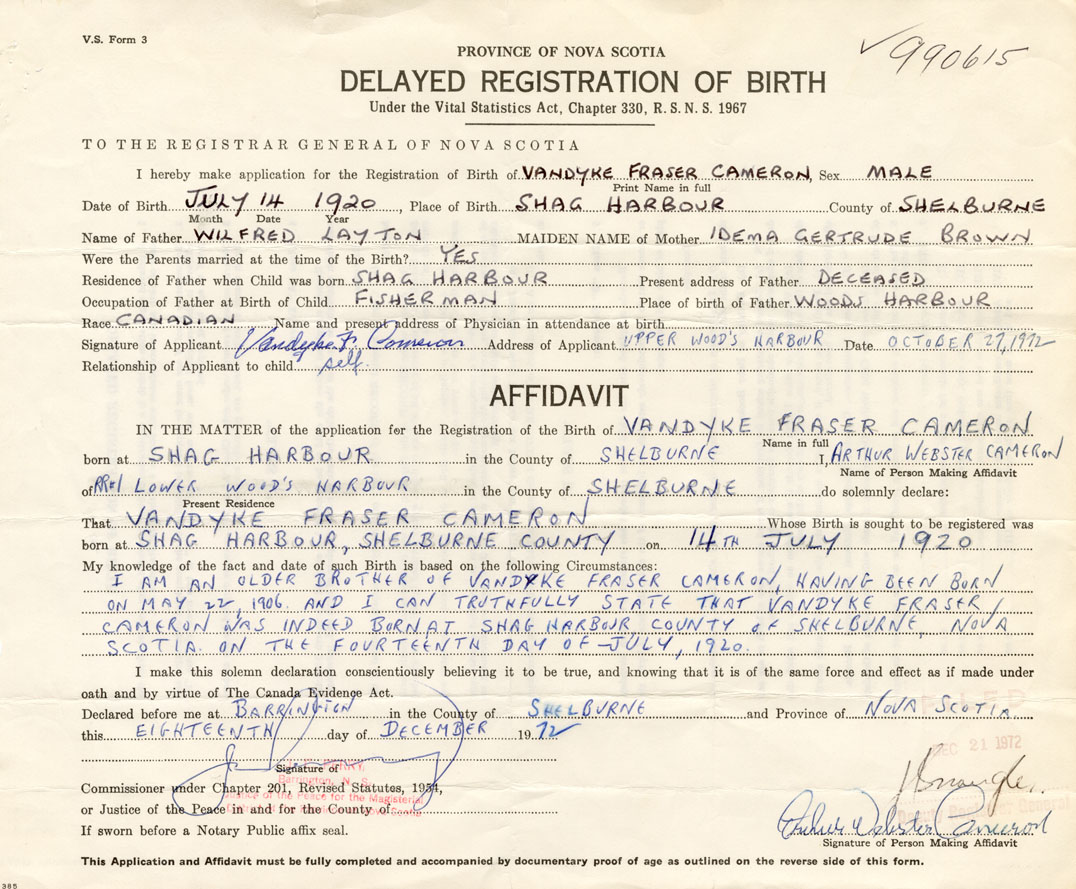 V.S. Form 3
990615
PROVINCE OF NOVA SCOTIA
DELAYED REGISTRATION OF BIRTH
Under the Vital Statistics Act, Chapter 330, R.S.N.S. 1967
TO THE REGISTRAR GENERAL OF NOVA SCOTIA
I hereby make application for the Registration of Birth of VANDYKE FRASER CAMERON, Sex MALE
Print Name in full
Date of Birth JULY 14 1920, Place of Birth SHAG HARBOUR County of SHELBURNE
Month Date Year
Name of Father WILFRED LAYTON MAIDEN NAME of Mother IDEMA GERTRUDE BROWN
Were the Parents married at the time of the Birth? YES
Residence of Father when Child was born SHAG HARBOUR Present address of Father DECEASED
Occupation of Father at Birth of Child FISHERMAN Place of birth of Father WOODS HARBOUR
Race CANADIAN Name and present address of Physician in attendance at birth
Signature of Applicant Vandyke F. Cameron Address of Applicant UPPER WOOD'S HARBOUR Date OCTOBER 27, 1972
Relationship of Applicant to child self.
AFFIDAVIT
IN THE MATTER of the application for the Registration of the Birth of VANDYKE FRASER CAMERON
Name in full
born at SHAG HARBOUR in the County of SHELBURNE I, ARTHUR WEBSTER CAMERON
Name of Person Making Affidavit
of RR#1 LOWER WOOD'S HARBOUR in the County of SHELBURNE do solemnly declare:
Present Residence
That VANDYKE FRASER CAMERON Whose Birth is sought to be registered was
born at SHAG HARBOUR, SHELBURNE COUNTY on 14TH JULY 1920
My knowledge of the fact and date of such Birth is based on the following Circumstances:
I AM AN OLDER BROTHER OF VANDYKE FRASER CAMERON, HAVING BEEN BORN
ON MAY 22, 1906. AND I CAN TRUTHFULLY STATE THAT VANDYKE FRASER
CAMERON WAS INDEED BORN AT SHAG HARBOUR COUNTY OF SHELBURNE, NOVA
SCOTIA. ON THE FOURTEENTH DAY OF JULY, 1920.
I make this solemn declaration conscientiously believing it to be true, and knowing that it is of the same force and effect as if made under
oath and by virtue of The Canada Evidence Act.
Declared before me at BARRINGTON in the County of SHELBURNE and Province of NOVA SCOTIA
this EIGHTEENTH day of DECEMBER 1972
DEC 21 1972
Signature of
Barrington, N. S.
Commissioner under Chapter 201, Revised Statutes, 1954,
Justice of the Peace for the Magisterial
or Justice of the Peace in and for the County of
Deputy Registrar General
If sworn before a Notary Public affix seal.
Arthur Webster Cameron
Signature of Person Making Affidavit
This Application and Affidavit must be fully completed and accompanied by documentary proof of age as outlined on the reverse side of this form.
385